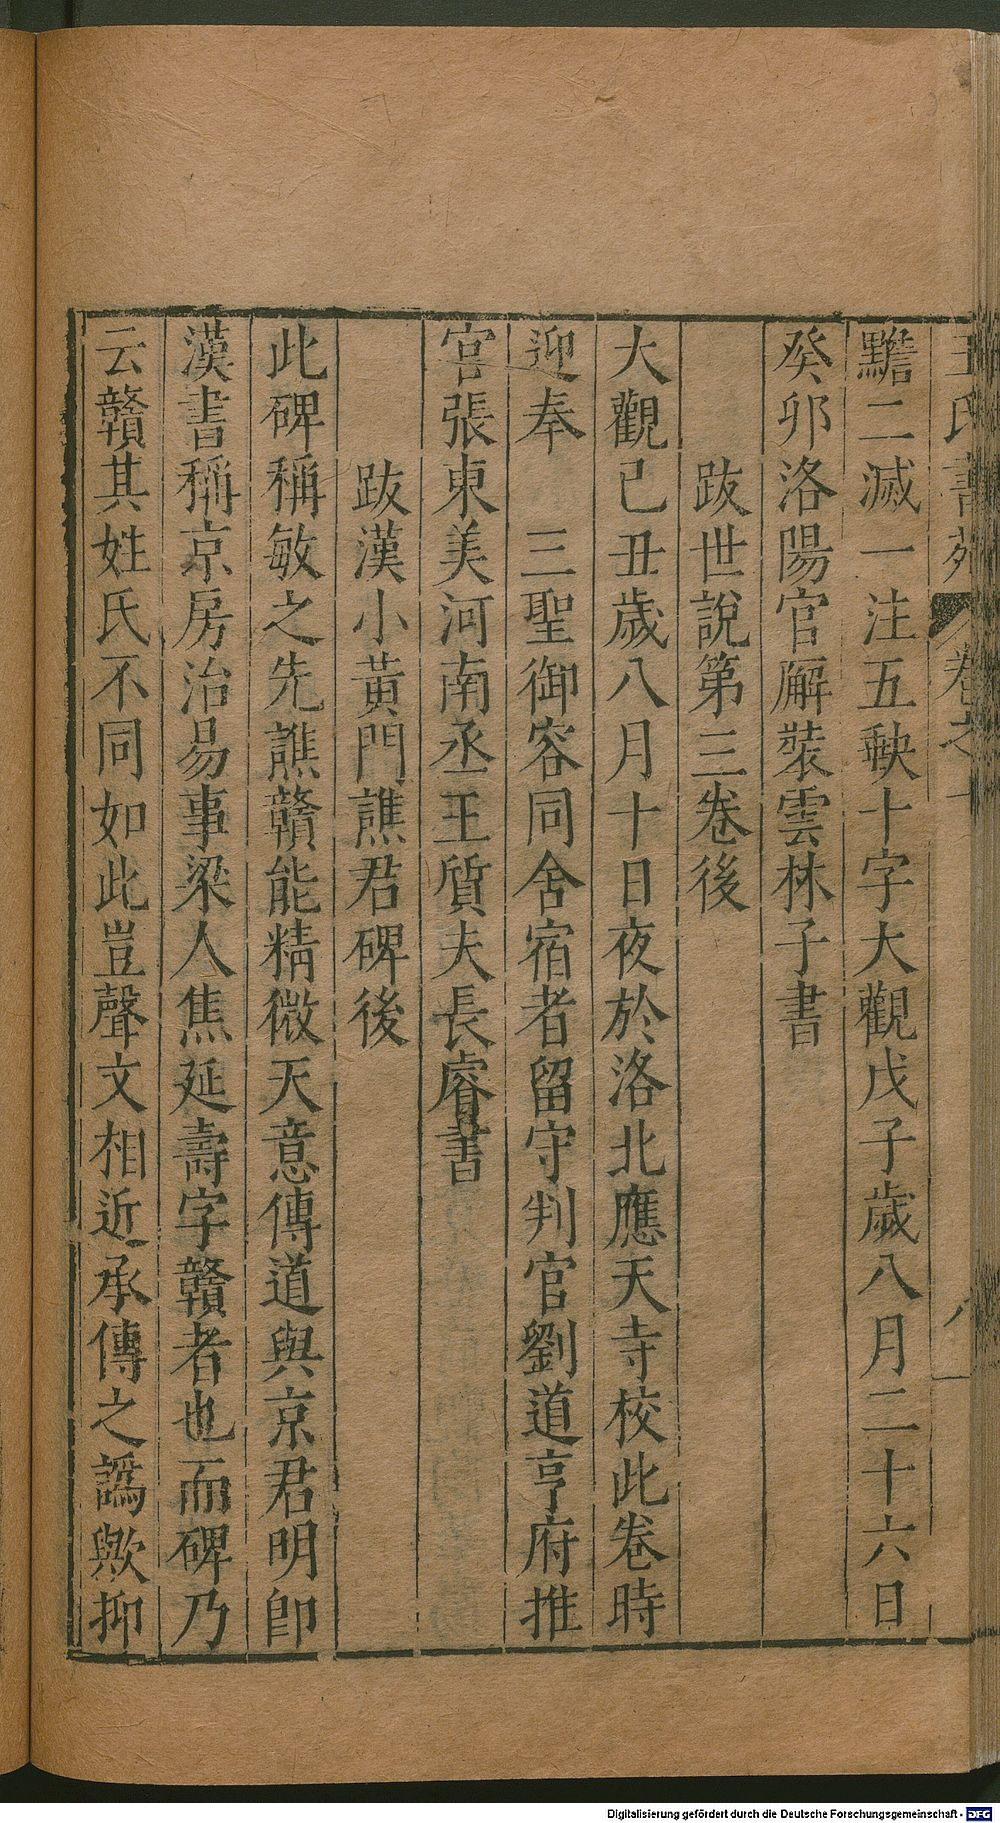 王氏書苑 卷之 八
黵二滅一注五軮十字大觀戊子歲八月二十六日
癸卯洛陽官廨裝雲林子書
跋世說第三卷後
大觀己丑歲八月十日夜於洛北應天寺校此卷時
迎奉 三聖御容同舍宿者留守判官劉道亨府推
官張東美河南丞王質夫長睿書
跋漢小黃門譙君碑後
此碑稱敏之先譙贛能精微天意傳道與京君明卽
漢書稱京房治易事梁人焦延壽字贛者也而碑乃
云贛其姓氏不同如此豈聲文相近承傳之譌歟抑
Digitalisierung gefördert durch die Deutsche Forschungsgemeinschaft - DFG